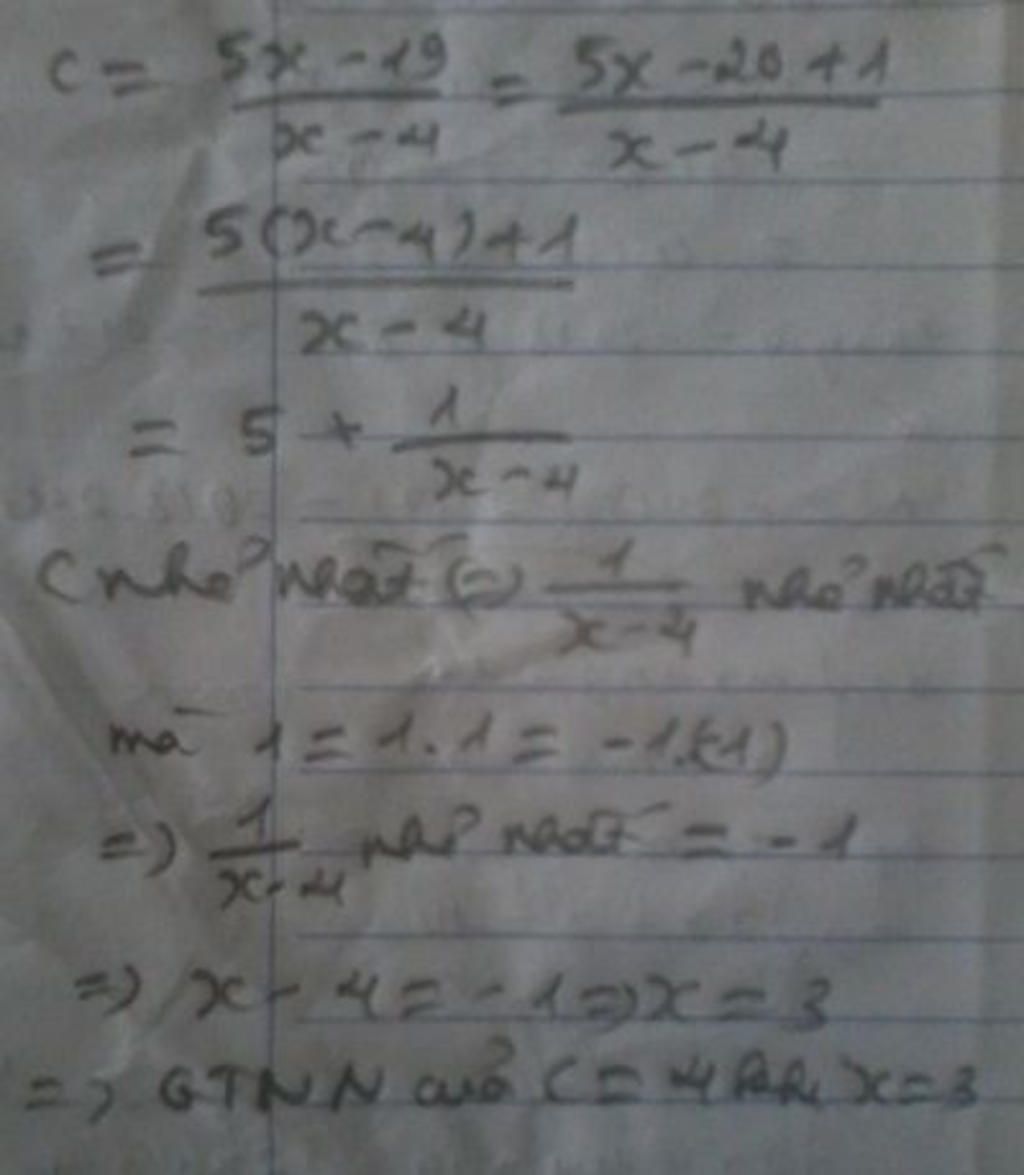 C = (5x - 19)/(x - 4) = (5x - 20 + 1)/(x - 4)
= (5(x - 4) + 1)/(x - 4)
= 5 + 1/(x - 4)
C nhỏ nhất (=) 1/(x - 4) nhỏ nhất
mà 1 = 1.1 = -1.(-1)
=) 1/(x - 4) nhỏ nhất = -1
=) x - 4 = -1 =) x = 3
=) GTNN của C = 4 khi x = 3